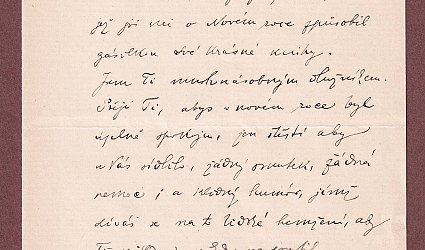 jež jsi mi v Novém roce způsobil
zásilkou své krásné knihy.
Jsem Ti mnohonásobným dlužníkem.
Přeji Ti, abys v novém roce byl
úplně spokojen, jen štěstí aby
u Vás sídlilo, žádný smutek, žádná
nemoc; a klidný humor, jímž
díváš se na to lidské hemžení, aby